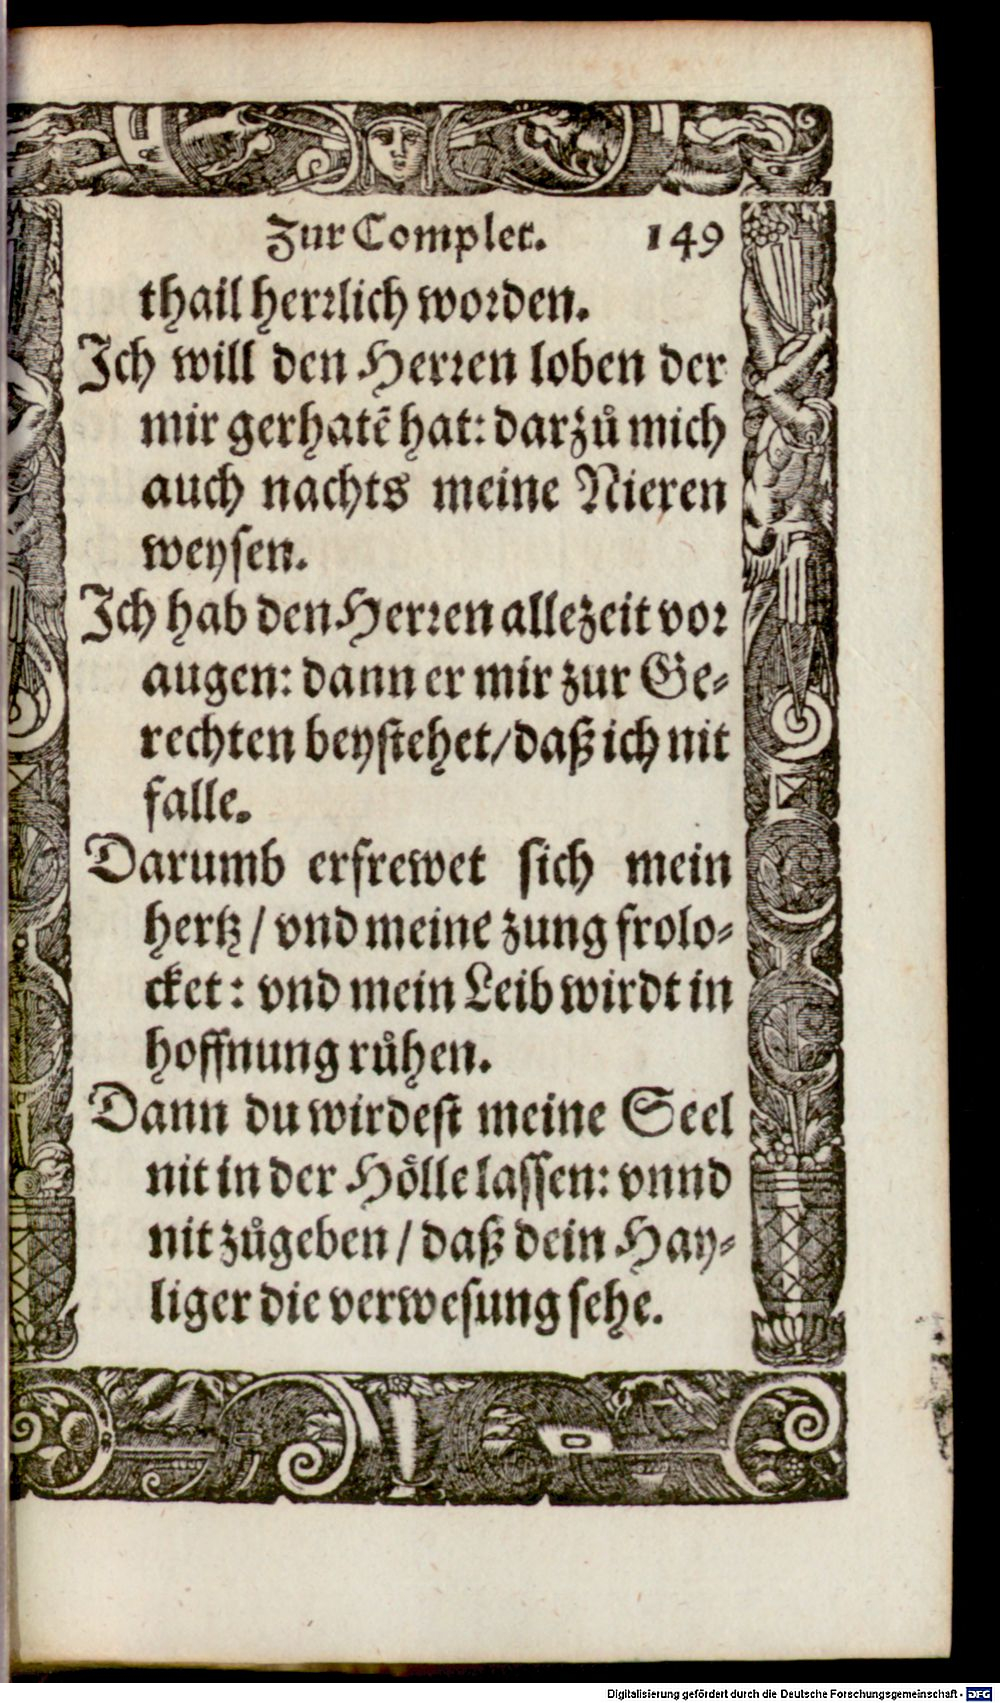 Zur Complet. 149
thail herrlich worden.
Ich will den Herren loben der
mir gerhatẽ hat: darzů mich
auch nachts meine Nieren
weysen.
Ich hab den Herren allezeit vor
augen: dann er mir zur Ge-
rechten beystehet/daß ich nit
falle.
Darumb erfrewet sich mein
hertz / vnd meine zung frolo-
cket: vnd mein Leib wirdt in
hoffnung růhen.
Dann du wirdest meine Seel
nit in der Hölle lassen: vnnd
nit zůgeben / daß dein Hay-
liger die verwesung sehe.
Digitalisierung gefördert durch die Deutsche Forschungsgemeinschaft - DFG